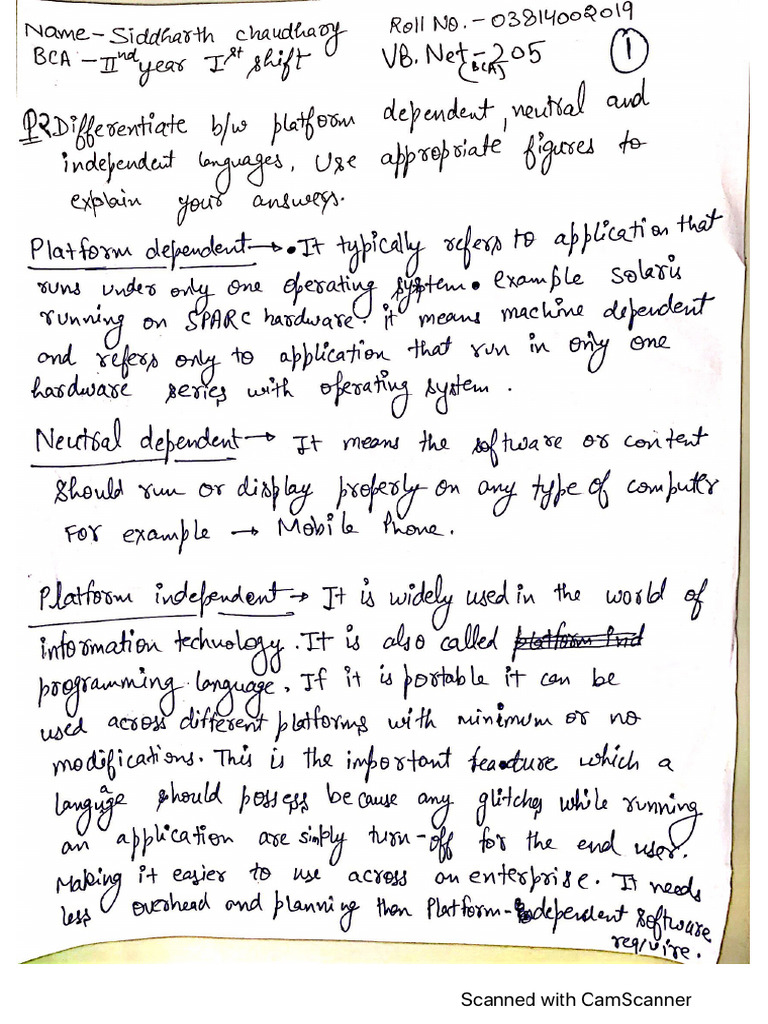 Name - Siddharth chaudhary Roll No. - 03814002019
BCA - IInd year Ist shift VB. Net - 205 (BCA) 1
Differentiate b/w platform dependent, neutral and
independent languages, Use appropriate figures to
explain your answers.
Platform dependent → • It typically refers to application that
runs under only one operating system • example Solaris
running on SPARC hardware. it means machine dependent
and refers only to application that run in only one
hardware series with operating system.
Neutral dependent → It means the software or content
should run or display properly on any type of computer
For example → Mobile Phone.
Platform independent → It is widely used in the world of
information technology. It is also called platform ind
programming language. If it is portable it can be
used across different platforms with minimum or no
modifications. This is the important feature which a
language should possess because any glitches while running
an application are simply turn-off for the end user.
Making it easier to use across an enterprise. It needs
less overhead and planning then Platform-dependent software
require.
Scanned with CamScanner